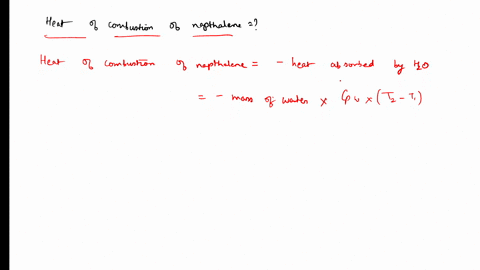 Heat of combustion of napthalene = ?
Heat of combustion of napthalene = - heat absorbed by H2O
= - mass of water × Cp × (T2 - T1)